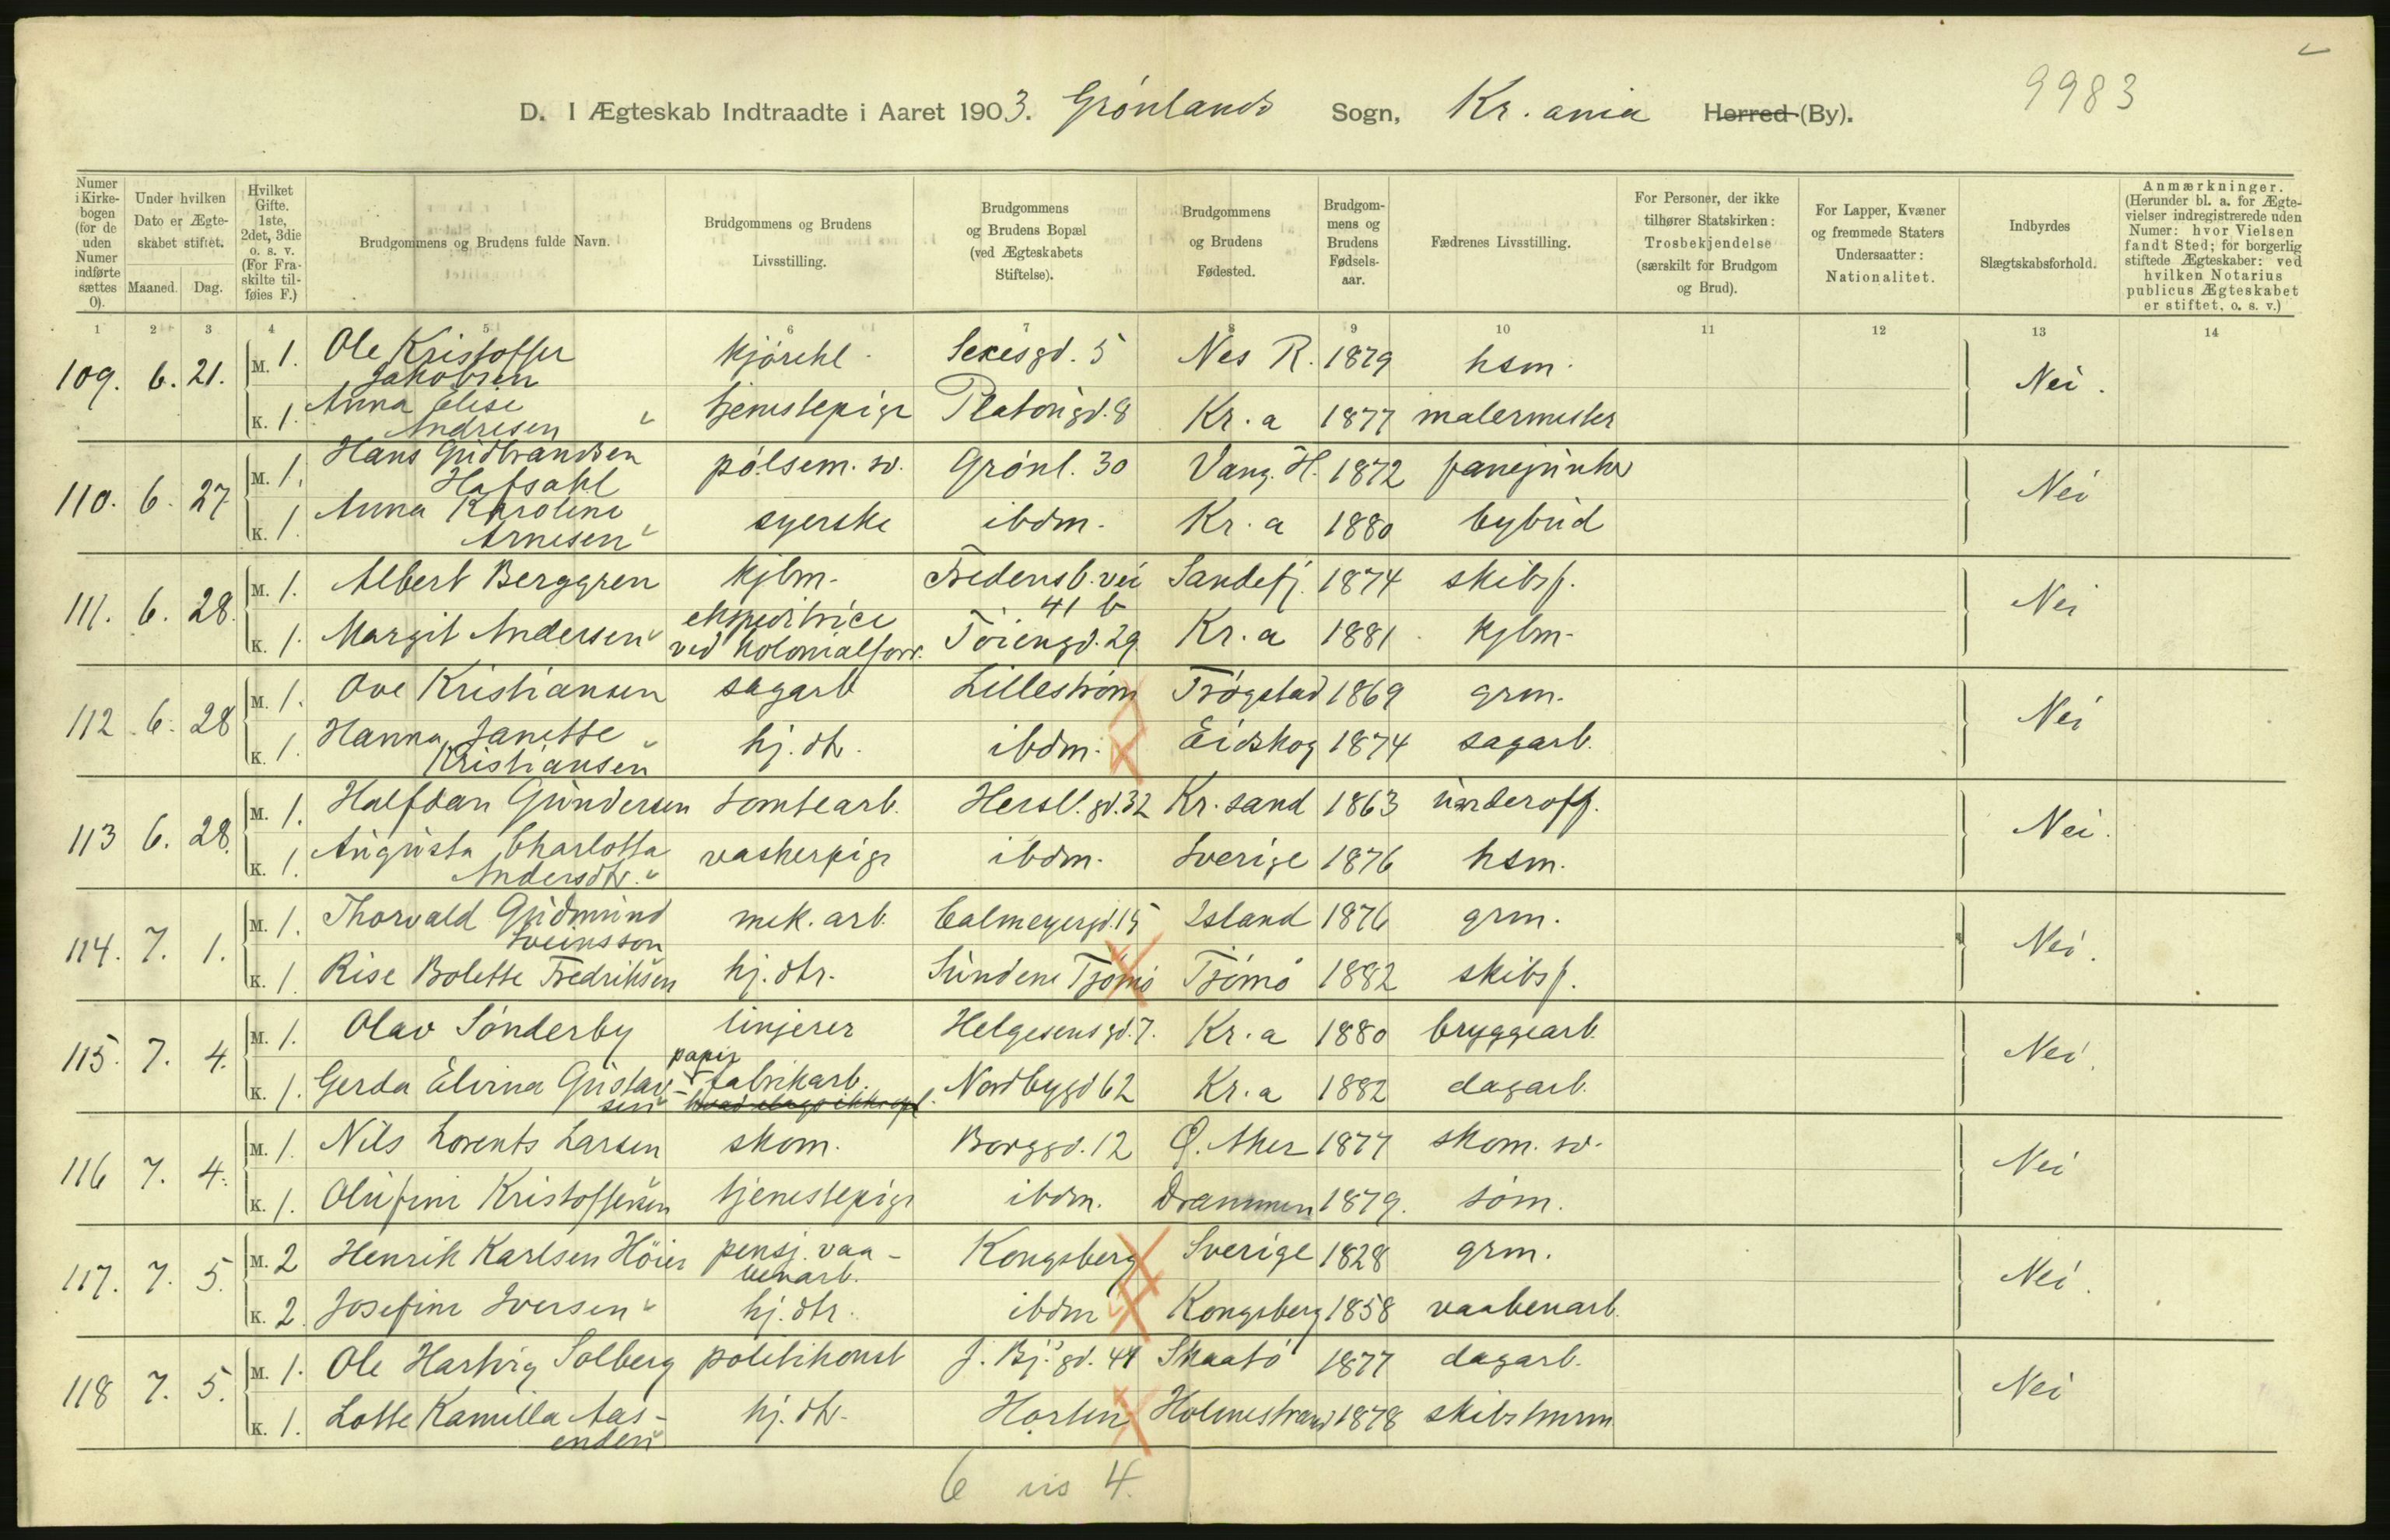 9983
D. I Ægteskab Indtraadte i Aaret 1903. Grønlands Sogn, Kr.ania Herred (By).
Numer i Kirkebogen (for de uden Numer indførte sættes 0).
Under hvilken Dato er Ægteskabet stiftet.
Maaned. Dag.
Hvilket Gifte. 1ste, 2det, 3die o. s. v. (For Fraskilte tilføies F.)
Brudgommens og Brudens fulde Navn.
Brudgommens og Brudens Livsstilling.
Brudgommens og Brudens Bopæl (ved Ægteskabets Stiftelse).
Brudgommens og Brudens Fødested.
Brudgommens og Brudens Fødselsaar.
Fædrenes Livsstilling.
For Personer, der ikke tilhører Statskirken: Trosbekjendelse (særskilt for Brudgom og Brud).
For Lapper, Kvæner og fremmede Staters Undersaatter: Nationalitet.
Indbyrdes Slægtskabsforhold.
Anmærkninger. (Herunder bl. a. for Ægtevielser indregistrerede uden Numer: hvor Vielsen fandt Sted; for borgerlig stiftede Ægteskaber: ved hvilken Notarius publicus Ægteskabet er stiftet, o. s. v.)
1 2 3 4 5 6 7 8 9 10 11 12 13 14
109. 6. 21. M. 1. Ole Kristoffer Jakobsen kjørekl. Sexesgd. 5 Nes R. 1879 hsm. Nei.
K. 1. Anna Elise Andresen tjenestepige Platousgd. 8 Kr.a 1877 malermester
110. 6. 27 M. 1. Hans Gudbrandsen Hafsahl pølsem. sv. Grønl. 30 Vang. H. 1872 Nei
K. 1. Anna Karoline Arnesen syerske ibdm. Kr.a 1880 bybud
111. 6. 28. M. 1. Albert Berggren kjbm. Fredensb.vei 41 b Sandefj. 1874 skibsf. Nei
K. 1. Margit Andersen ekspeditrice ved kolonialforr. Tøiengd. 29 Kr.a 1881 kjbm.
112 6. 28 M. 1. Ove Kristiansen sagarb Lillestrøm Trøgstad 1869 grm. Nei
K. 1. Hanna Janette Kristiansen hj. dtr. ibdm. Eidskog 1874 sagarb.
113 6. 28. M. 1. Halfdan Gundersen tomtearb. Hersl. gd. 32 Kr.sand 1863 underoff. Nei.
K. 1. Augusta Charlotta Andersdtr. vaskepige ibdm. Sverige 1876 hsm.
114. 7. 1. M. 1. Thorvald Gudmund Sveinsson mek. arb. Calmeyersgd. 15 Island 1876 grm. Nei.
K. 1. Rise Bolette Fredriksen hj. dtr. Sundene Tjømø Tjømø 1882 skibsf.
115. 7. 4. M. 1. Olav Sønderby linjerer Helgesensgd. 7. Kr.a 1880 bryggearb. Nei.
K. 1. Gerda Elvina Gustavsen papirfabrikarb. hvad slags ikke opl. Nordbygd 62 Kr.a 1882 dagarb.
116 7. 4. M. 1. Nils Lorents Larsen skom. Borggd. 12 Ø. Aker 1877 skom. sv. Nei
K. 1. Olufine Kristoffersen tjenestepige ibdm. Drammen 1879. søm.
117. 7. 5. M. 2 Henrik Karlsen Høier pensj. vaabenarb. Kongsberg Sverige 1828 grm. Nei.
K. 2. Josefine Iversen hj. dtr. ibdm Kongsberg 1858 vaabenarb.
118 7. 5. M. 1. Ole Hartvig Solberg politikonst J. Bj. gd. 41 Skaatø 1877 dagarb. Nei
K. 1. Lotte Kamilla Aasenden hj. dtr. Horten Holmestrand 1878 skibstmrm
6 vis 4.